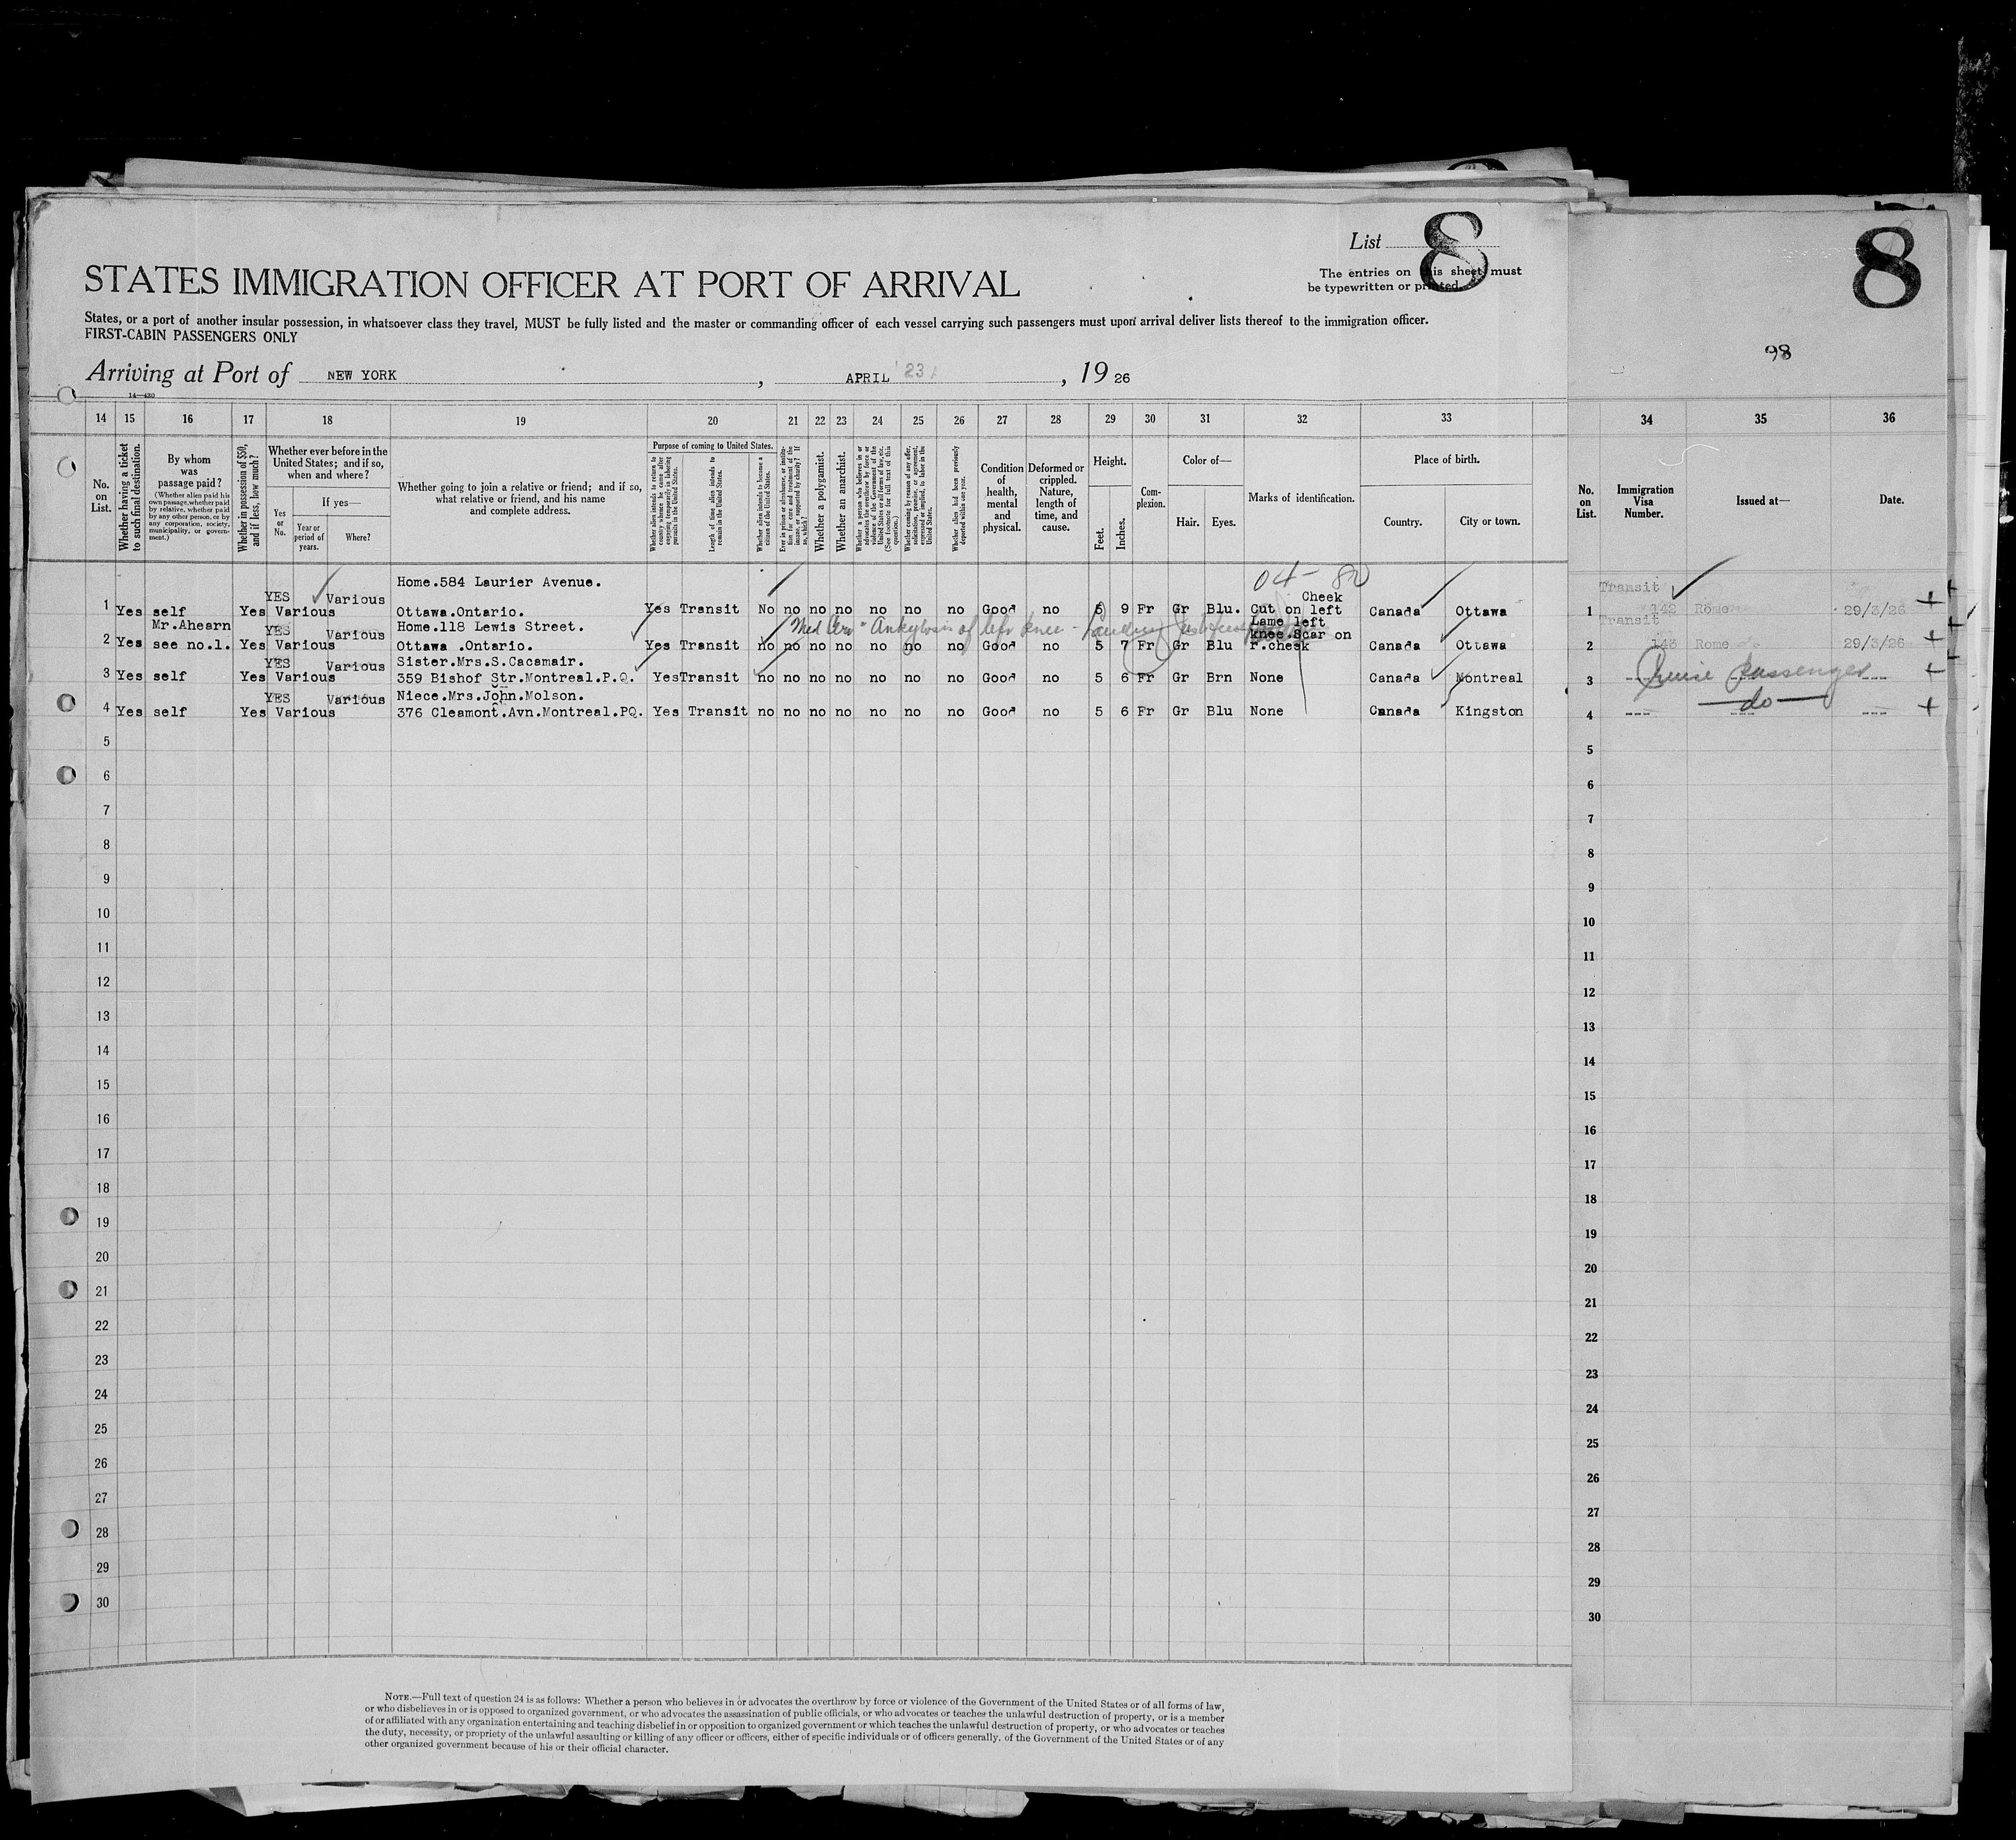 List 8
8
The entries on this sheet must
be typewritten or printed.
STATES IMMIGRATION OFFICER AT PORT OF ARRIVAL
States, or a port of another insular possession, in whatsoever class they travel, MUST be fully listed and the master or commanding officer of each vessel carrying such passengers must upon arrival deliver lists thereof to the immigration officer.
FIRST-CABIN PASSENGERS ONLY
98
Arriving at Port of NEW YORK, APRIL 23, 1926
14—430
14 15 16 17 18 19 20 21 22 23 24 25 26 27 28 29 30 31 32 33 34 35 36
No. on List.
Whether having a ticket to such final destination.
By whom was passage paid?
(Whether alien paid his own passage, whether paid by relative, whether paid by any other person, or by any corporation, society, municipality, or government.)
Whether in possession of $50, and if less, how much?
Whether ever before in the United States; and if so, when and where?
Yes or No.
If yes—
Year or period of years.
Where?
Whether going to join a relative or friend; and if so, what relative or friend, and his name and complete address.
Purpose of coming to United States.
Whether alien intends to return to country whence he came after engaging temporarily in laboring pursuits in the United States.
Length of time alien intends to remain in the United States.
Whether alien intends to become a citizen of the United States.
Ever in prison or almshouse, or institution for care and treatment of the insane, or supported by charity? If so, which?
Whether a polygamist.
Whether an anarchist.
Whether a person who believes in or advocates the overthrow by force or violence of the Government of the United States or all forms of law, etc. (See footnote for full text of this question.)
Whether coming by reason of any offer, solicitation, promise, or agreement, expressed or implied, to labor in the United States.
Whether alien had been previously deported within one year.
Condition of health, mental and physical.
Deformed or crippled. Nature, length of time, and cause.
Height.
Feet.
Inches.
Complexion.
Color of—
Hair.
Eyes.
Marks of identification.
Place of birth.
Country.
City or town.
No. on List.
Immigration Visa Number.
Issued at—
Date.
04- 80
Home.584 Laurier Avenue. Cheek Transit
1 Yes self Yes YES Various Various Ottawa.Ontario. Yes Transit No no no no no no no Good no 5 9 Fr Gr Blu. Cut on left Canada Ottawa 1 142 Rome 29/3/26 +
Mr.Ahearn Home.118 Lewis Street. Lame left Transit
Med Cer "Ankylosis of left knee -
2 Yes see no.1. Yes YES Various Various Ottawa .Ontario. Yes Transit no no no no no no no Good no 5 7 Fr Gr Blu knee.Scar on r.cheek Canada Ottawa 2 143 Rome 29/3/26 +
Sister.Mrs.S.Cacamair.
3 Yes self Yes YES Various Various 359 Bishof Str.Montreal.P.Q. Yes Transit no no no no no no no Good no 5 6 Fr Gr Brn None Canada Montreal 3 Cruise passenger +
Niece.Mrs.John.Molson.
4 Yes self Yes YES Various Various 376 Cleamont.Avn.Montreal.PQ. Yes Transit no no no no no no no Good no 5 6 Fr Gr Blu None Canada Kingston 4 --- do --- +
5 5
6 6
7 7
8 8
9 9
10 10
11 11
12 12
13 13
14 14
15 15
16 16
17 17
18 18
19 19
20 20
21 21
22 22
23 23
24 24
25 25
26 26
27 27
28 28
29 29
30 30
NOTE.—Full text of question 24 is as follows: Whether a person who believes in or advocates the overthrow by force or violence of the Government of the United States or of all forms of law,
or who disbelieves in or is opposed to organized government, or who advocates the assassination of public officials, or who advocates or teaches the unlawful destruction of property, or is a member
of or affiliated with any organization entertaining and teaching disbelief in or opposition to organized government or which teaches the unlawful destruction of property, or who advocates or teaches
the duty, necessity, or propriety of the unlawful assaulting or killing of any officer or officers, either of specific individuals or of officers generally, of the Government of the United States or of any
other organized government because of his or their official character.